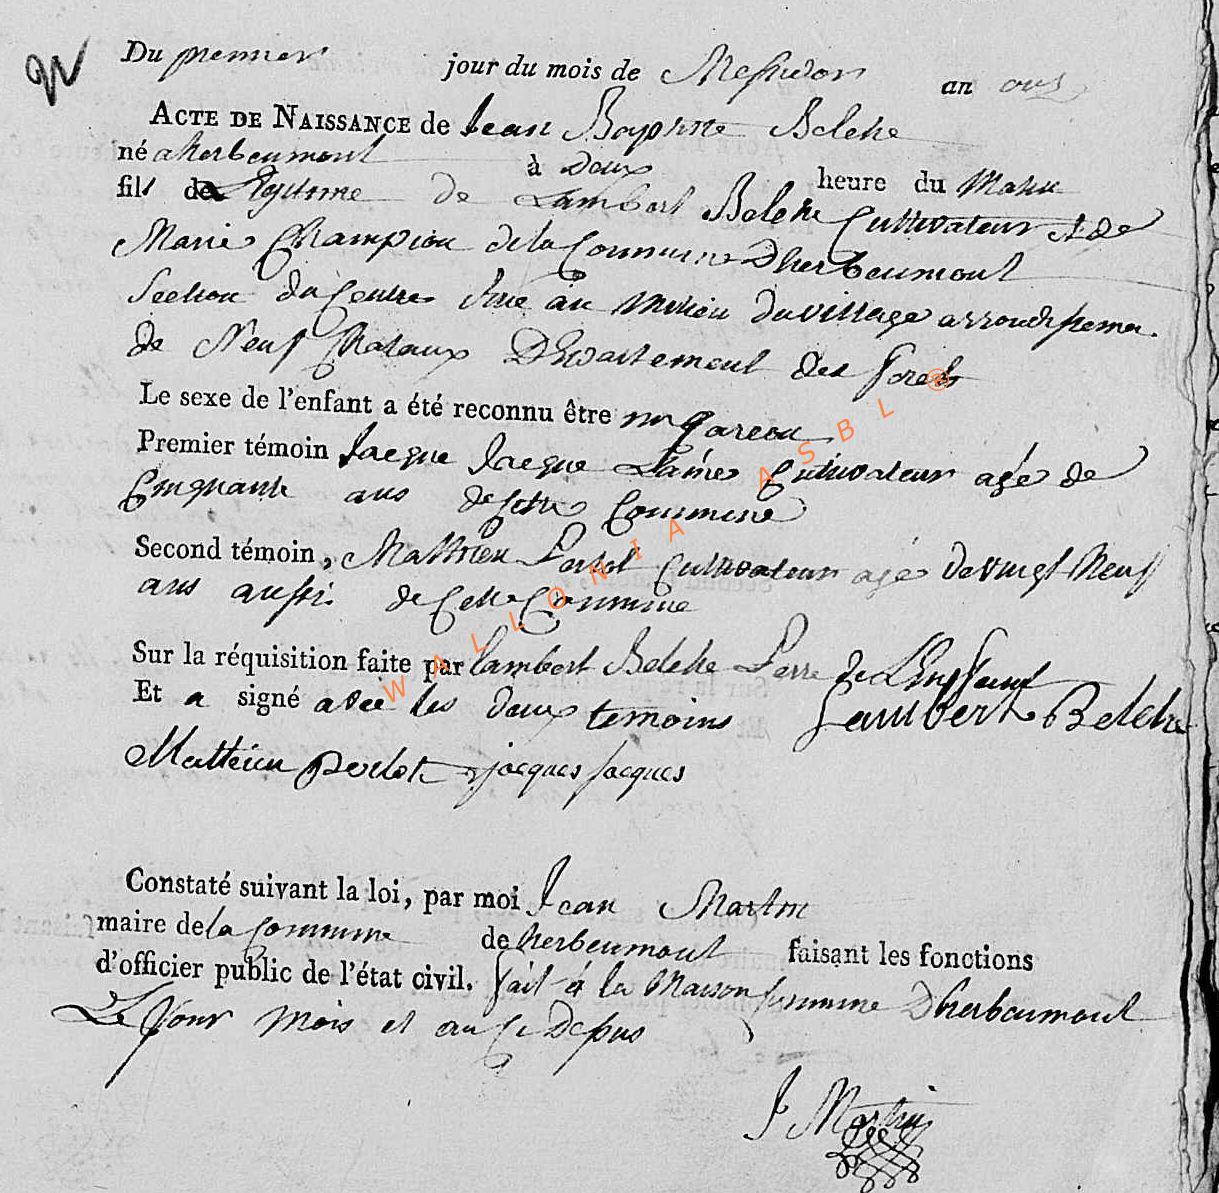 Du premier jour du mois de Messidor an onze
ACTE DE NAISSANCE de Jean Baptiste Beleke
né a herbeumont à Deux heure du Matin
fils de Legitime de Lambert Beleke Cultivateur et de
Marie Champion de la Commune Dherbeumont
Section du Centre Rue au Milieu du village arrondissemen
de Neuf Chataux Departement des forets
Le sexe de l'enfant a été reconnu être un garcon
Premier témoin Jacque Jacque Lainé Cultivateur agé de
Cinquante ans de Cette Commune
Second témoin, Mathieu Perlot Cultivateur agé de vingt Neuf
ans aussi de Cette Commune
Sur la réquisition faite par Lambert Beleke Perre de L'enffant
Et a signé avec les deux temoins Lambert Beleke
Mattieu perlot jacques jacques
Constaté suivant la loi, par moi Jean Martin
maire de la Commune de herbeumont faisant les fonctions
d'officier public de l'état civil. fait à la Maison Commune Dherbeumont
Le Jour Mois et an Ci Depus
J Martin
WALLONIA ASBL ®